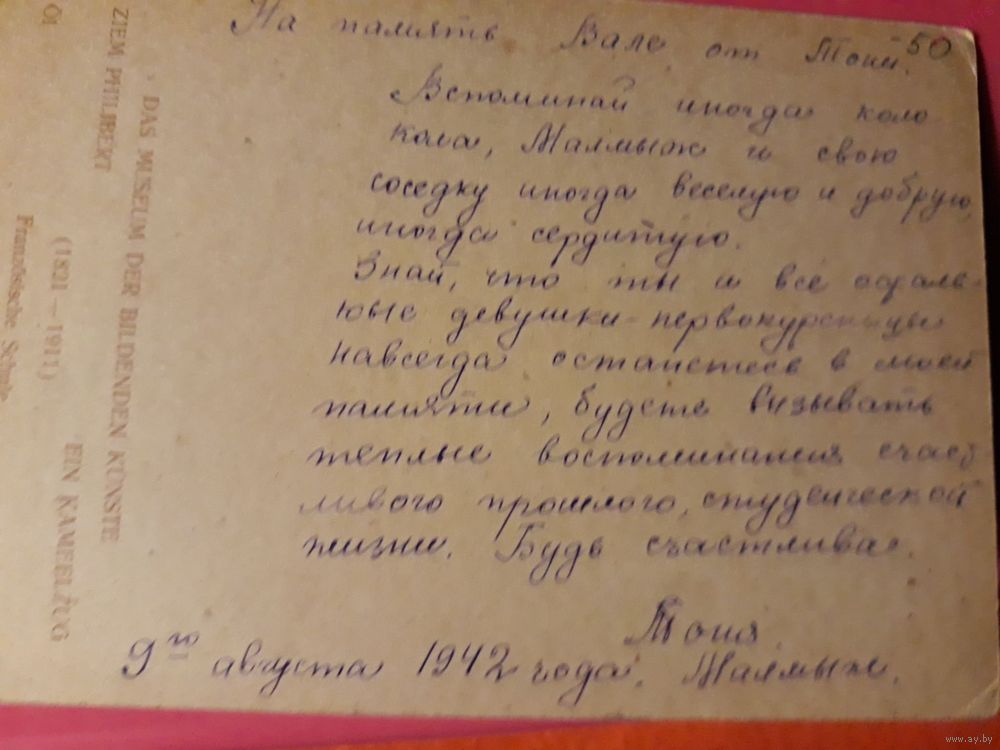 На память Вале от Тони.
50
Вспоминай иногда коло
кола, Малмыж и свою
соседку иногда веселую и добрую,
иногда сердитую.
Знай, что ты и все осталь-
ные девушки-первокурсницы
навсегда останетесь в моей
памяти, будете вызывать
теплые воспоминания счаст
ливого прошлого, студенческой
жизни. Будь счастлива.
Тоня
9го августа 1942 года. Малмыж.
ZIEM PHILIBERT
(1821 — 1911)
Französische Schule
EIN KAMEELZUG
Öl
DAS MUSEUM DER BILDENDEN KÜNSTE
www.ay.by